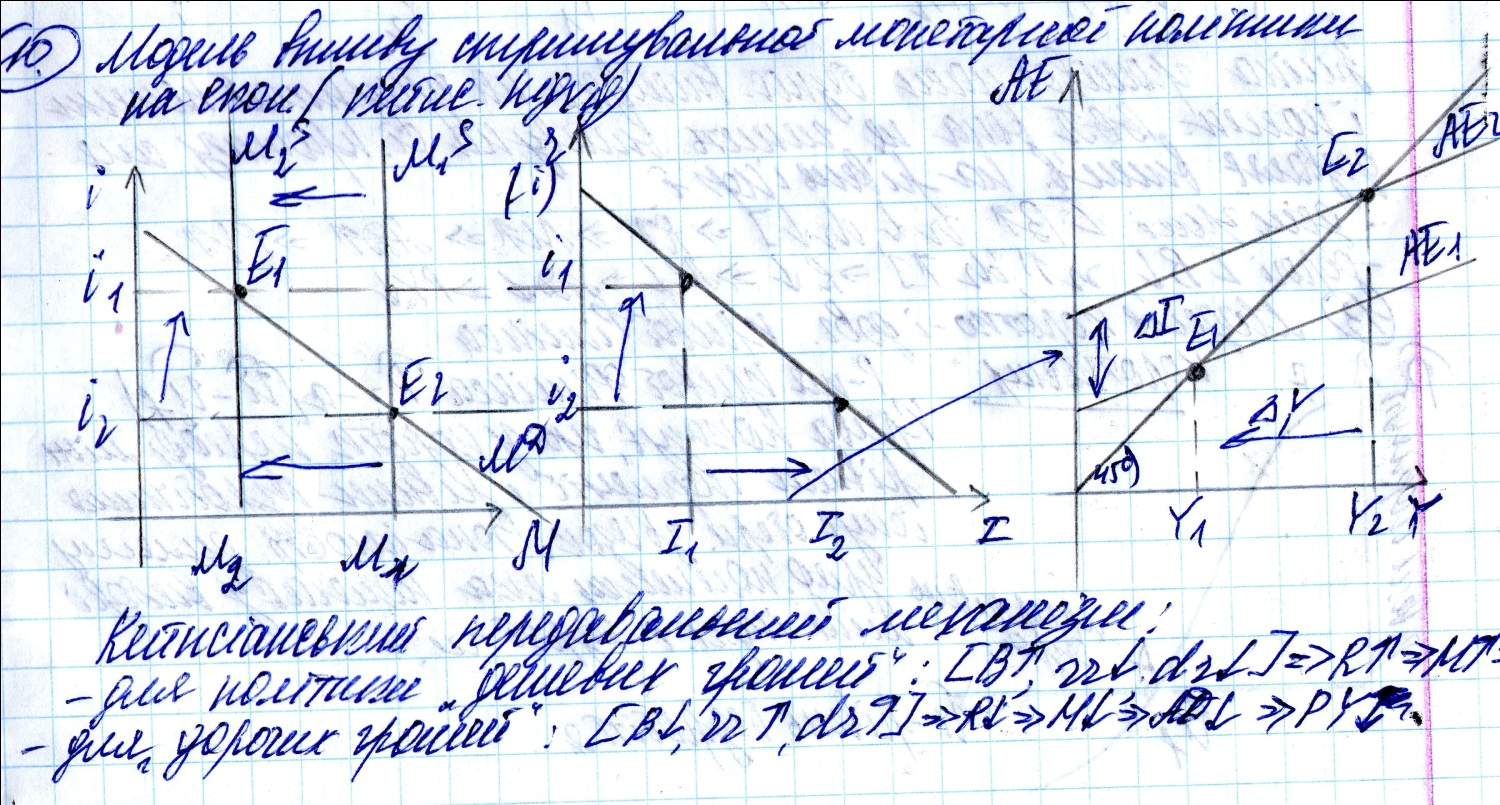 10. Модель впливу стримувальної монетарної політики
на екон. (кейнс. підхід)
i
M₂ˢ
M₁ˢ
E₁
i₁
i₂
E₂
Mᴰ
M₂
M₁
M
r
(i)
i₁
i₂
I₁
I₂
I
AE
E₂
AE₂
AE₁
ΔI
E₁
ΔY
45°
Y₁
Y₂
Y
Кейнсіанський передавальний механізм:
- для політики "дешевих грошей": [B↑, rr↓, dr↓] => R↑ => M↑ =
- для "дорогих грошей": [B↓, rr↑, dr↑] => R↓ => M↓ => AD↓ => PY↓.